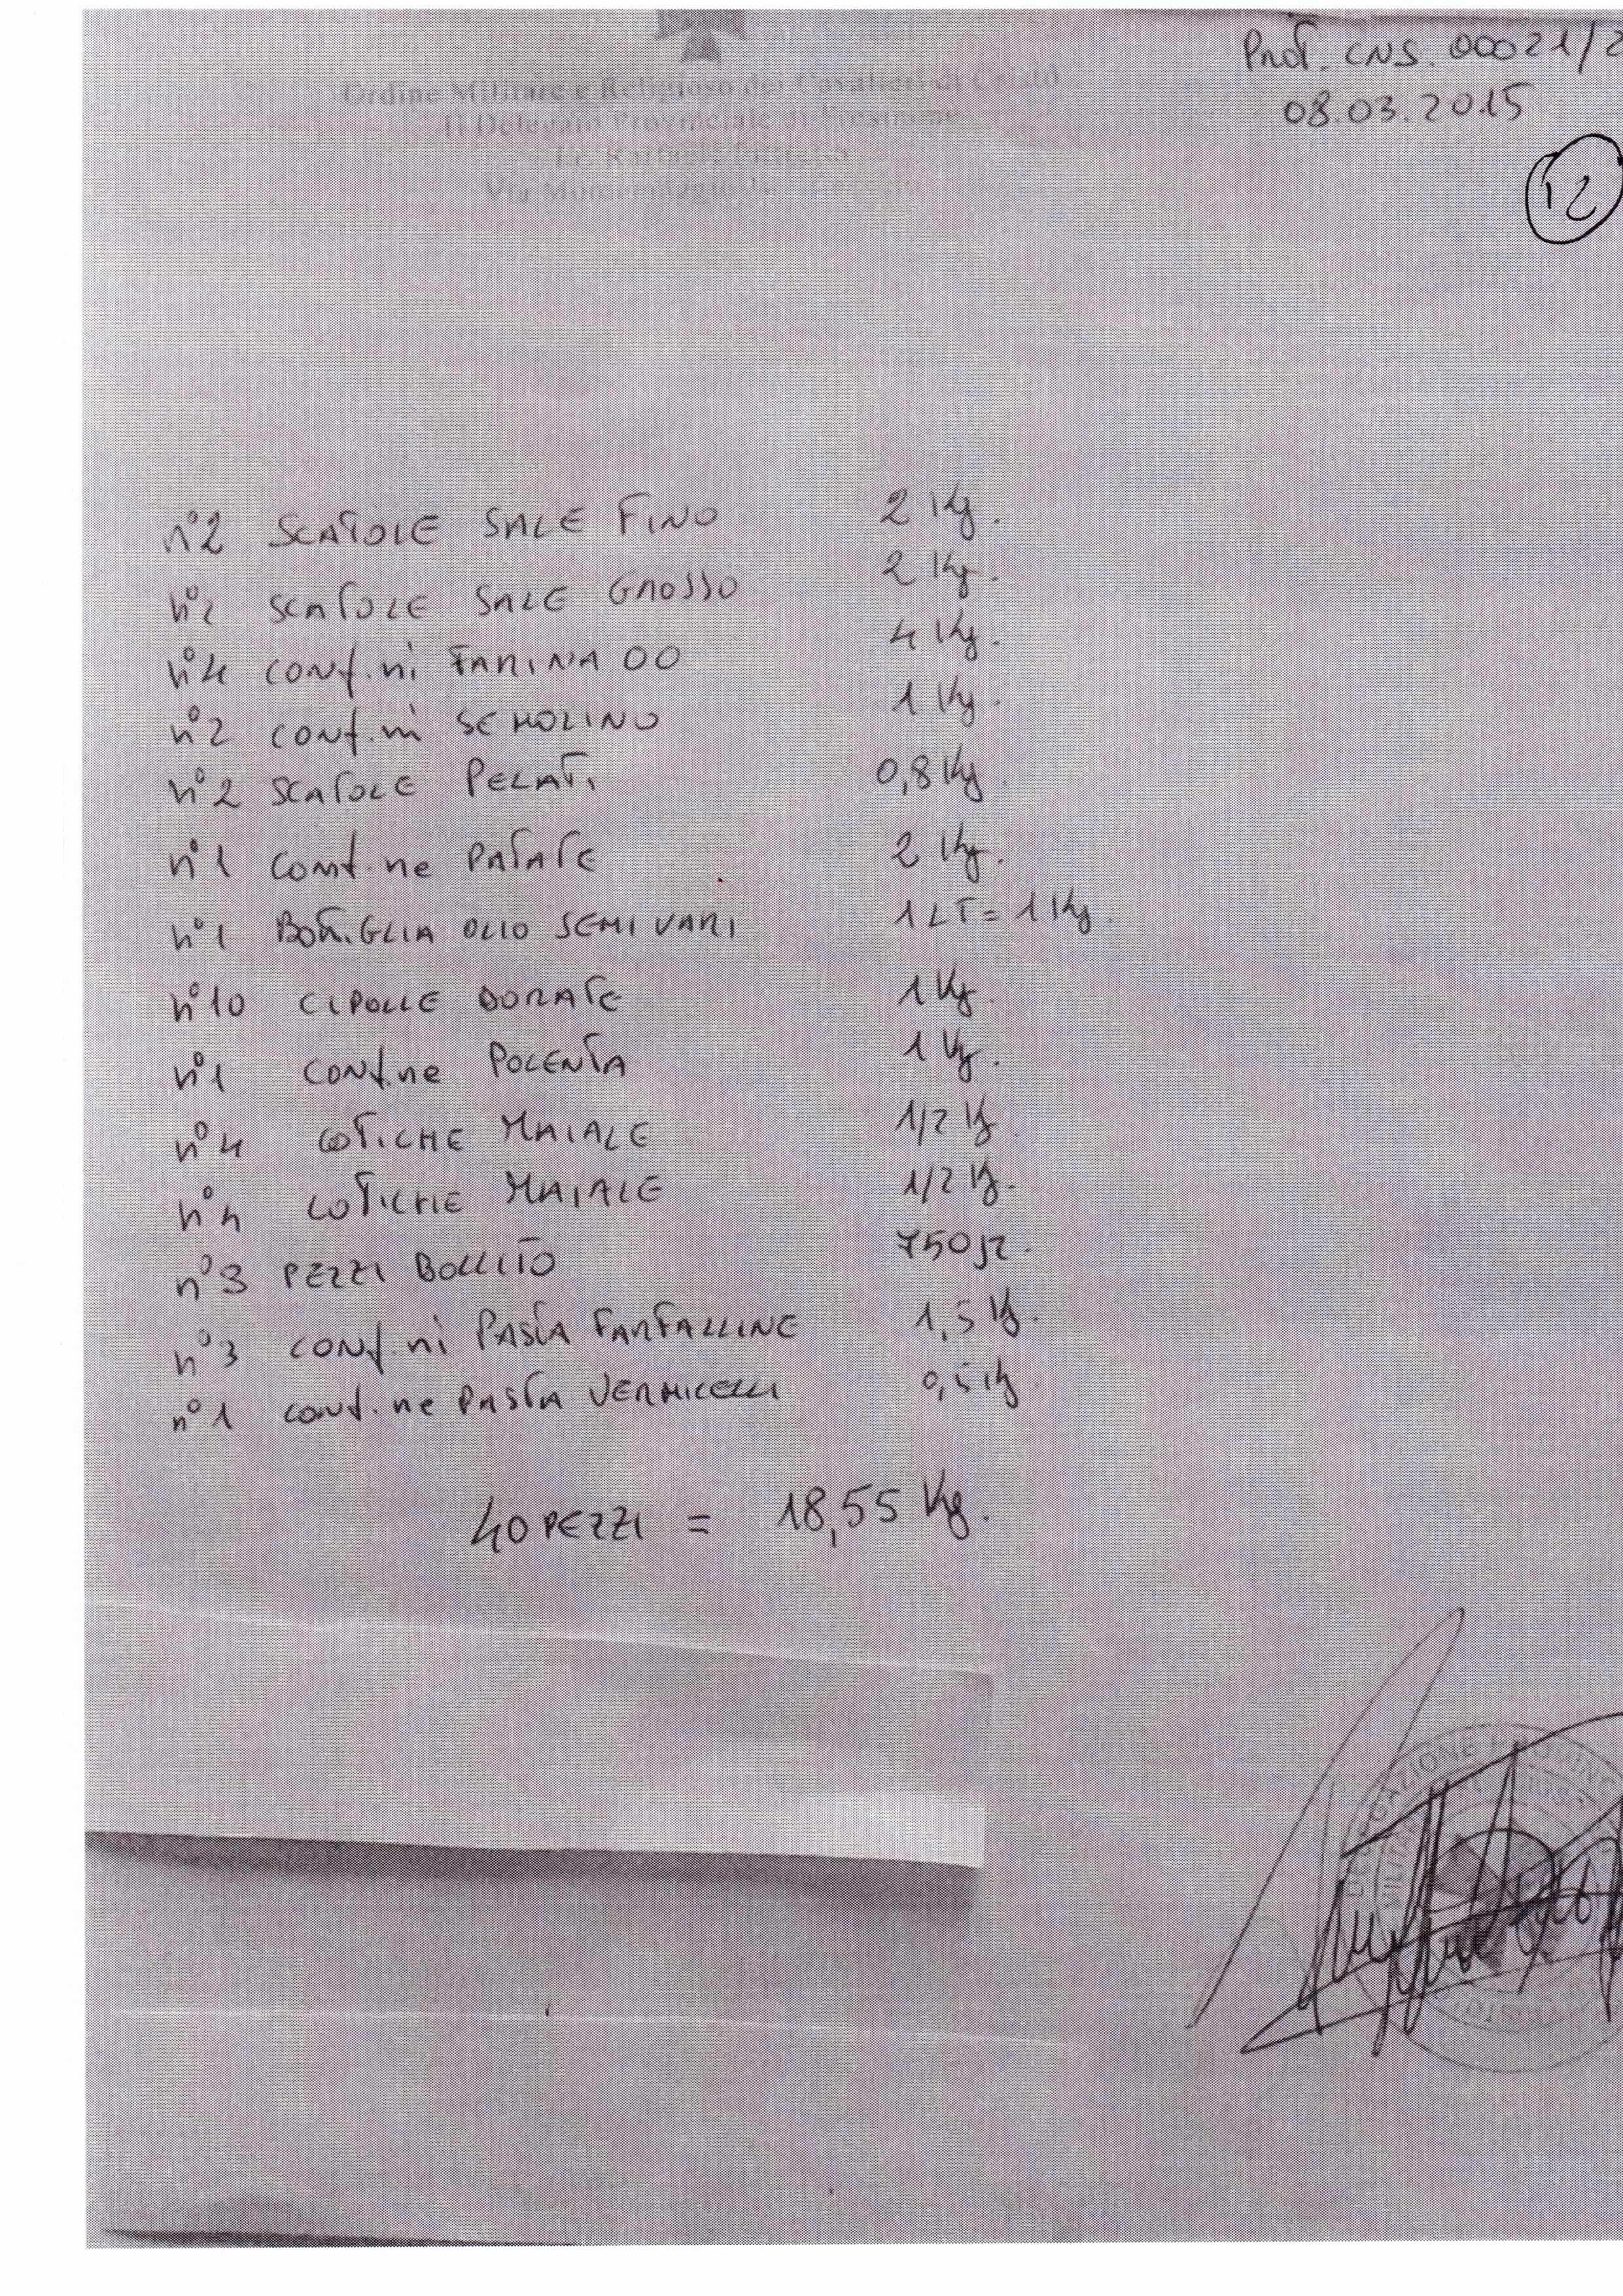 Prot. CNS. 00021/2
08.03.2015
12
Ordine Militare e Religioso dei Cavalieri di Cristo
Il Delegato Provinciale di Frosinone
Fr. Raffaele
Via
n°2 SCATOLE SALE FINO 2 Kg.
n°2 SCATOLE SALE GROSSO 2 Kg.
n°4 conf.ni FARINA 00 4 Kg.
n°2 conf.ni SEMOLINO 1 Kg.
n°2 SCATOLE PELATI 0,8 Kg.
n°1 conf.ne PATATE 2 Kg.
n°1 BOTTIGLIA OLIO SEMI VARI 1 LT = 1 Kg.
n°10 CIPOLLE DORATE 1 Kg.
n°1 conf.ne POLENTA 1 Kg.
n°4 COTICHE MAIALE 1/2 Kg.
n°4 COTICHE MAIALE 1/2 Kg.
n°3 PEZZI BOLLITO 750 gr.
n°3 conf.ni PASTA FARFALLINE 1,5 Kg.
n°1 conf.ne PASTA VERMICELLI 0,5 Kg.
40 PEZZI = 18,55 Kg.
DELEGAZIONE PROVINC